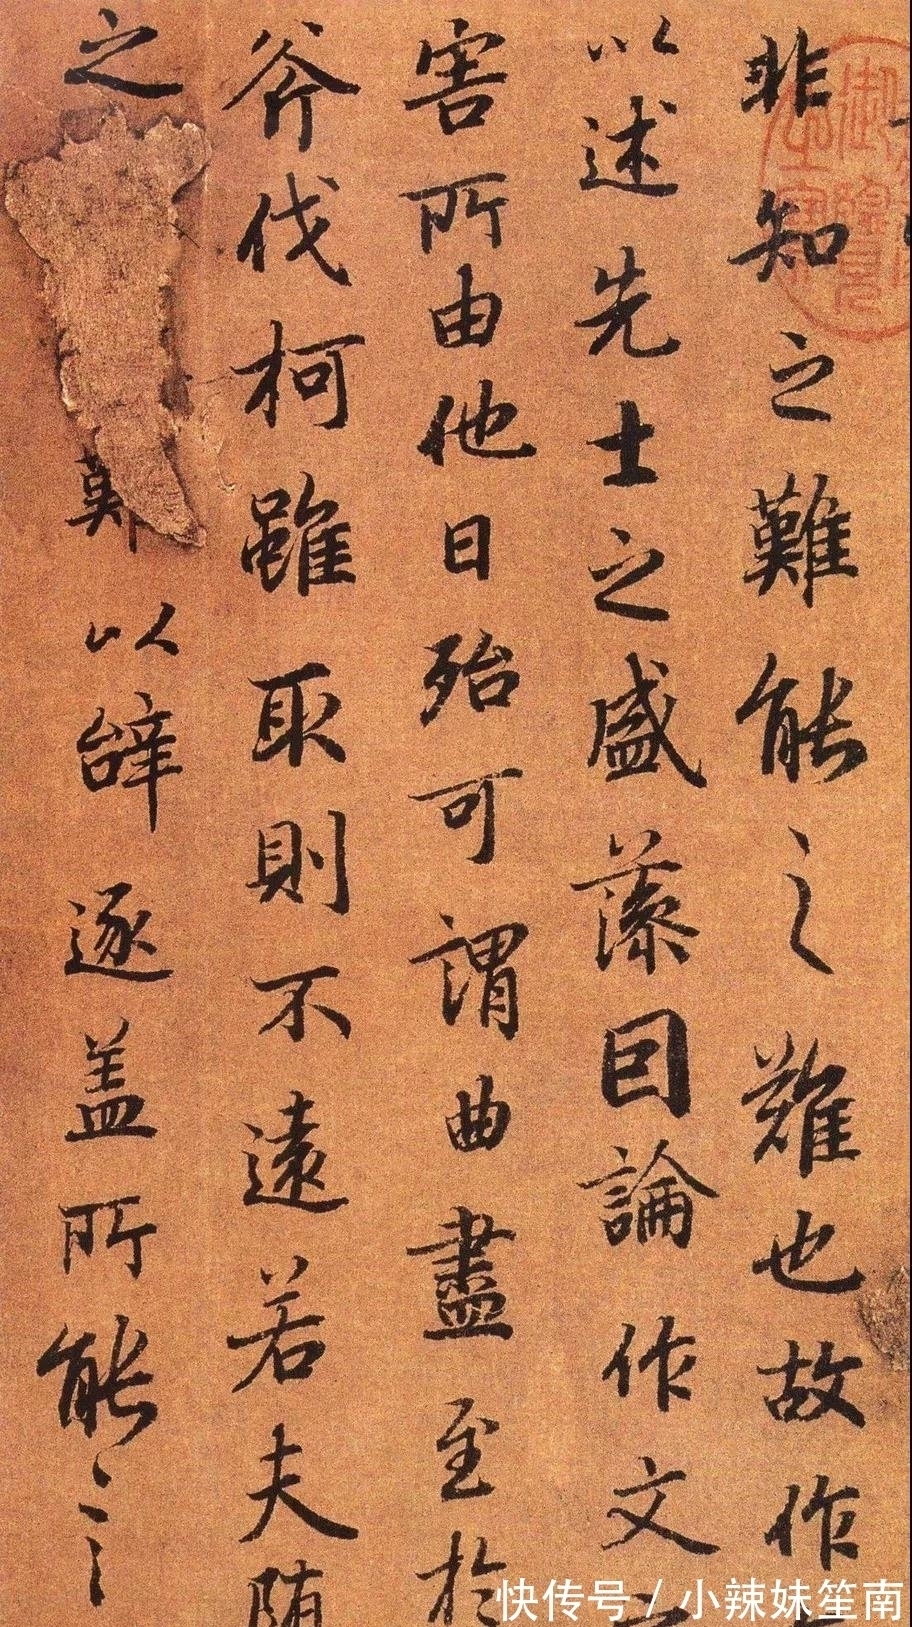 非知之難能之難也故作
以述先士之盛藻因論作文之
害所由他日殆可謂曲盡至於
斧伐柯雖取則不遠若夫随
之難以辞逐盖所能之
快传号／小辣妹笙南